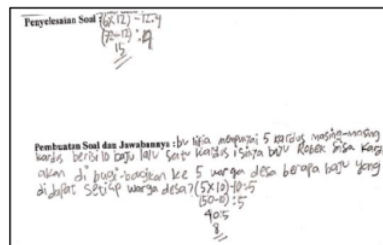 Penyelesaian Soal : (6x12) - 12:4
(72-12) : 4
15
Pembuatan Soal dan Jawabannya : bu mempunyai 5 kardus masing-masing
kardus berisi 10 baju lalu satu kardus isinya baju Robek Sisa
akan di bagi-bagikan ke 5 warga desa berapa baju yang
di dapat setiap warga desa? (5x10)-10:5
(50-10) : 5
40:5
8